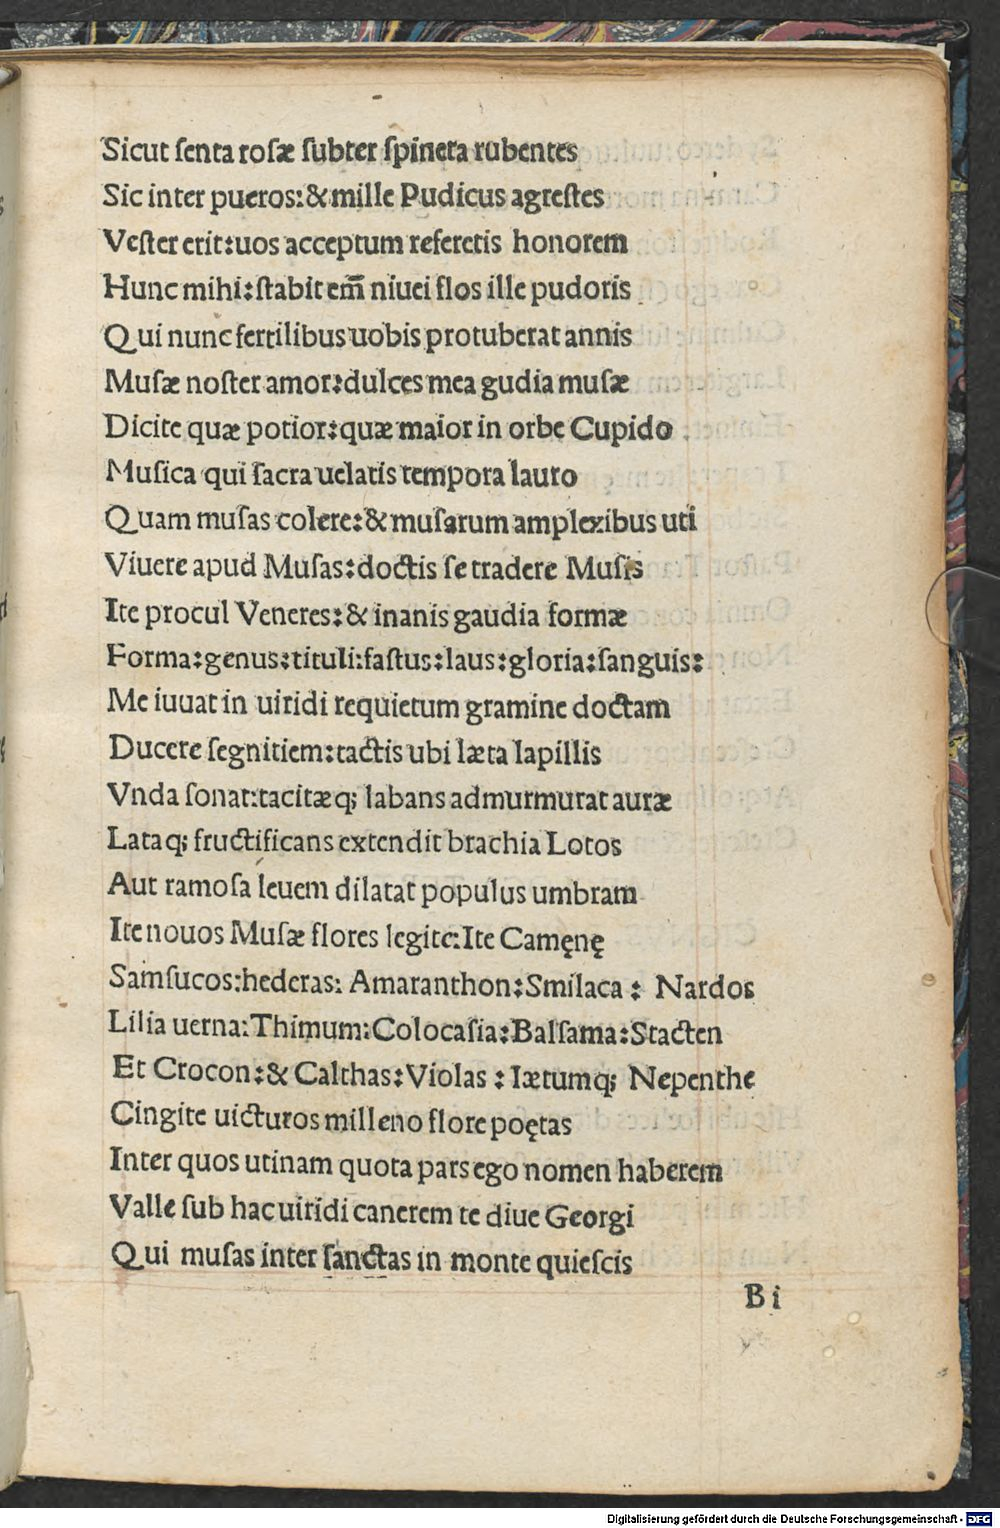 Sicut ſenta roſæ ſubter ſpineta rubentes
Sic inter pueros:&mille Pudicus agreſtes
Veſter erit:uos acceptum referetis honorem
Hunc mihi:ſtabit em̄ niuei flos ille pudoris
Qui nunc fertilibus uobis protuberat annis
Muſæ noſter amor:dulces mea gudia muſæ
Dicite quæ potior:quæ maior in orbe Cupido
Muſica qui ſacra uelatis tempora lauro
Quam muſas colere:&muſarum amplexibus uti
Viuere apud Muſas:doctis ſe tradere Muſis
Ite procul Veneres:& inanis gaudia formæ
Forma:genus:tituli:faſtus:laus:gloria:ſanguis:
Me iuuat in uiridi requietum gramine doctam
Ducere ſegnitiem:tactis ubi læta lapillis
Vnda ſonat:tacitæq; labans admurmurat auræ
Lataq; fructificans extendit brachia Lotos
Aut ramoſa leuem dilatat populus umbram
Ite nouos Muſæ flores legite:Ite Camęnę
Samſucos:hederas: Amaranthon:Smilaca : Nardos
Lilia uerna:Thimum:Colocaſia:Balſama:Stacten
Et Crocon:& Calthas:Violas : Iætumq; Nepenthe
Cingite uicturos milleno flore poętas
Inter quos utinam quota pars ego nomen haberem
Valle ſub hac uiridi canerem te diue Georgi
Qui muſas inter ſanctas in monte quieſcis
B i
Digitalisierung gefördert durch die Deutsche Forschungsgemeinschaft - DFG